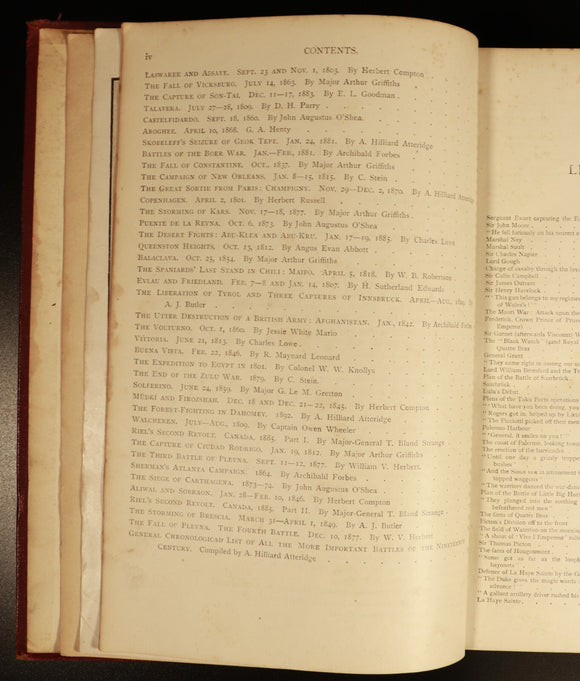 iv CONTENTS.
LASWAREE AND ASSAYE. SEPT. 23 AND NOV. 1, 1803. By Herbert Compton
THE FALL OF VICKSBURG. JULY 14, 1863. By Major Arthur Griffiths
THE CAPTURE OF SON-TAI. DEC. 11—17, 1883. By E. L. Goodman
TALAVERA. JULY 27—28, 1809. By D. H. Parry
CASTELFIDARDO. SEPT. 18, 1860. By John Augustus O'Shea
AROGHEE. APRIL 10, 1868. G. A. Henty
SKOBELEFF'S SEIZURE OF GEOK TEPE. JAN. 24, 1881. By A. Hilliard Atteridge
BATTLES OF THE BOER WAR. JAN.—FEB., 1881. By Archibald Forbes
THE FALL OF CONSTANTINE. OCT., 1837. By Major Arthur Griffiths
THE CAMPAIGN OF NEW ORLEANS. JAN. 8—15, 1815. By C. Stein
THE GREAT SORTIE FROM PARIS: CHAMPIGNY. NOV. 29—DEC. 2, 1870. By A. Hilliard Atteridge
COPENHAGEN. APRIL 2, 1801. By Herbert Russell
THE STORMING OF KARS. NOV. 17—18, 1877. By Major Arthur Griffiths
PUENTE DE LA REYNA. OCT. 6, 1873. By John Augustus O'Shea
THE DESERT FIGHTS: ABU-KLEA AND ABU-KRU. JAN. 17—19, 1885. By Charles Lowe
QUEENSTON HEIGHTS. OCT. 13, 1812. By Angus Evan Abbott
BALACLAVA. OCT. 25, 1854. By Major Arthur Griffiths
THE SPANIARDS' LAST STAND IN CHILI: MAIPO. APRIL 5, 1818. By W. B. Robertson
EYLAU AND FRIEDLAND. FEB. 7—8 AND JAN. 14, 1807. By H. Sutherland Edwards
THE LIBERATION OF TYROL AND THREE CAPTURES OF INNSBRUCK. APRIL—AUG., 1809. By
A. J. Butler
THE UTTER DESTRUCTION OF A BRITISH ARMY: AFGHANISTAN. JAN., 1842. By Archibald Forbes
THE VOLTURNO. OCT. 1, 1860. By Jessie White Mario
VITTORIA. JUNE 21, 1813. By Charles Lowe
BUENA VISTA. FEB. 22, 1846. By R. Maynard Leonard
THE EXPEDITION TO EGYPT IN 1801. By Colonel W. W. Knollys
THE END OF THE ZULU WAR. 1879. By C. Stein
SOLFERINO. JUNE 24, 1859. By Major G. Le M. Gretton
MÚDKÍ AND FIROZSHAH. DEC. 18 AND DEC. 21—22, 1845. By Herbert Compton
THE FOREST-FIGHTING IN DAHOMEY. 1892. By A. Hilliard Atteridge
WALCHEREN. JULY—AUG., 1809. By Captain Owen Wheeler
RIEL'S SECOND REVOLT. CANADA, 1885. PART I. By Major-General T. Bland Strange
THE CAPTURE OF CIUDAD RODRIGO. JAN. 19, 1812. By Major Arthur Griffiths
THE THIRD BATTLE OF PLEVNA. SEPT. 11—12, 1877. By William V. Herbert
SHERMAN'S ATLANTA CAMPAIGN. 1864. By Archibald Forbes
THE SIEGE OF CARTHAGENA. 1873—74. By John Augustus O'Shea
ALIWAL AND SOBRAON. JAN. 28—FEB. 10, 1846. By Herbert Compton
RIEL'S SECOND REVOLT. CANADA, 1885. PART II. By Major-General T. Bland Strange
THE STORMING OF BRESCIA. MARCH 31—APRIL 1, 1849. By A. J. Butler
THE FALL OF PLEVNA. THE FOURTH BATTLE. DEC. 10, 1877. By W. V. Herbert
GENERAL CHRONOLOGICAL LIST OF ALL THE MORE IMPORTANT BATTLES OF THE NINETEENTH
CENTURY. Compiled by A. Hilliard Atteridge
LI
Sergeant Ewart capturing the
Sir John Moore
"He fell furiously on his
Marshal Ney
Marshal Soult
Sir Charles Napier
Lord Gough
Charge of cavalry through the
Sir Colin Campbell
Sir James Outram
Sir Henry Havelock
"This gun belongs to my
of Wales's!"
The Maori War: Attack upon the
Frederick, Crown Prince of
Emperor)
Sir Garnet (afterwards Viscount)
The "Black Watch" (42nd Royal
Quatre Bras
General Grant
"They came right in among our
Lord William Beresford and the
Plan of the Battle of Saarbrück
Saarbrück
Lulu's Début
Plans of the Taku Forts operations
"What have you been doing, young
"Rogers got in, helped up by
"The Picciotti picked off their
Palermo Harbour
"General, it smiles on you!"
The coast of Palermo, looking
The erection of the barricades
"Until one day a grizzly trapper
bushes"
"And the Sioux saw in amazement
topped waggons"
"The warriors danced the war-dance
Plan of the Battle of Little Big Horn
"They plunged into the seething
befeathered red men"
The farm of Quatre Bras
Picton's Division off to the front
The field of Waterloo on the morning
"A shout of 'Vive l'Empereur'
Sir Thomas Picton
The farm of Hougoumont
"Some got as far as the
bayonets"
Defence of La Haye Sainte by the
"The Duke gives the magic words
advance!'"
"A gallant artillery driver rushed his
La Haye Sainte